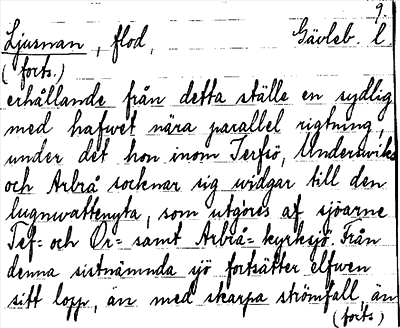 9.
Ljusnan, flod, Gävleb. l
(forts.)
erhållande från detta ställe en sydlig
med hafwet nära parallel rigtning,
under det hon inom Jerfsö, Underswiks
och Arbrå socknar sig widgar till den
lugnwattenyta, som utgöres af sjöarne
Tef= och Or= samt Arbrå= kyrksjö. Från
denna sistnämnda sjö fortsätter elfwen
sitt lopp, än med skarpa strömfall, än
(forts)